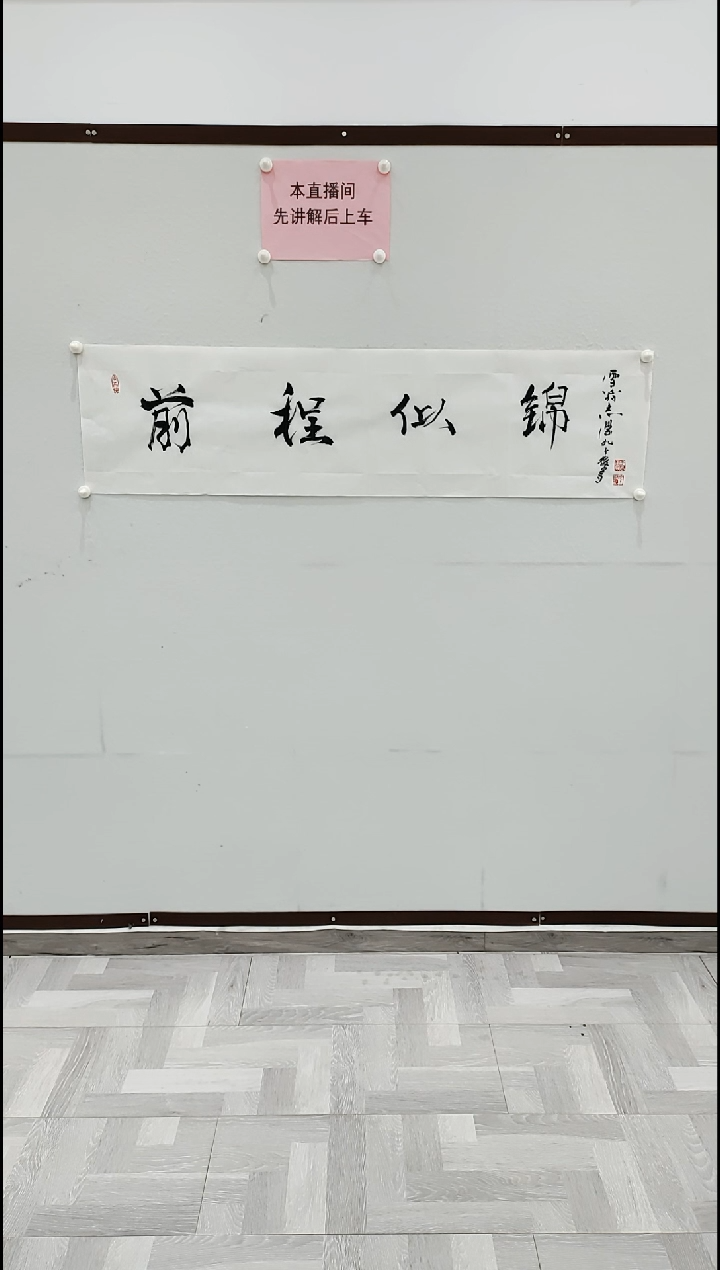 本直播间
先讲解后上车
前程似錦